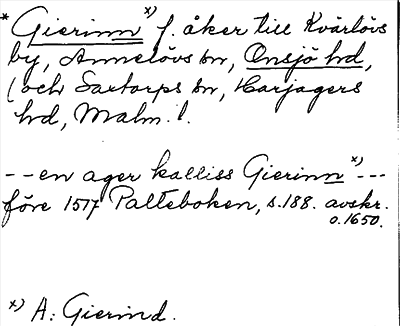 * Gierinn x) f. åker till Kvärlövs
by, Annelövs sn, Onsjö hd,
(och Sartorps sn, Harjagers
hd, Malm. l.
--en ager kalliss Gierinn x) ---
före 1517 Palteboken, s. 188. avskr.
o. 1650.
x) A: Gierind.